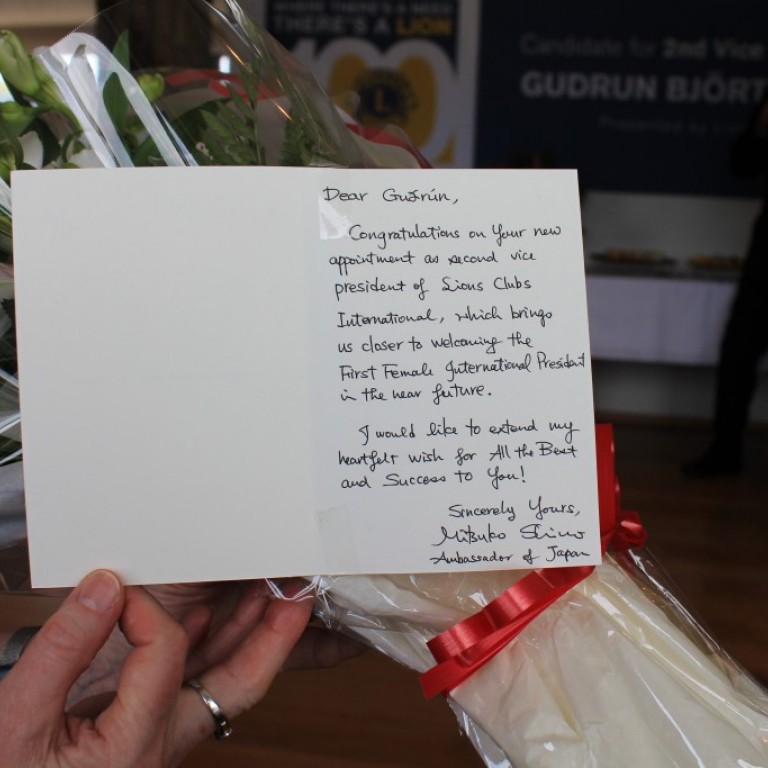 WHERE THERE'S A NEED
THERE'S A LION
100
L
Candidate for 2nd Vice
GUDRUN BJÖRT
Presented by
Dear Guðrún,
Congratulations on Your new
appointment as second vice
president of Lions Clubs
International, which brings
us closer to welcoming the
First Female International President
in the near future.
I would like to extend my
heartfelt wish for All the Best
and Success to You!
Sincerely Yours,
Mitsuko Shino
Ambassador of Japan